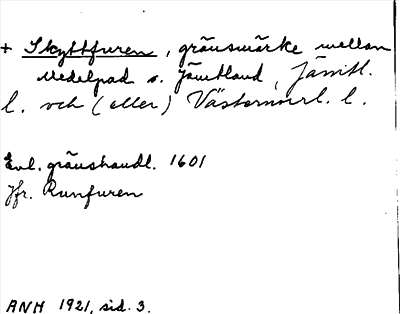 + Skyttfuren, gränsmärke mellan
Medelpad o. Jämtland, Jämtl.
l. och (eller) Västernorrl. l.
Enl. gränshandl. 1601
Jfr. Runfuren
ANH 1921, sid. 3.